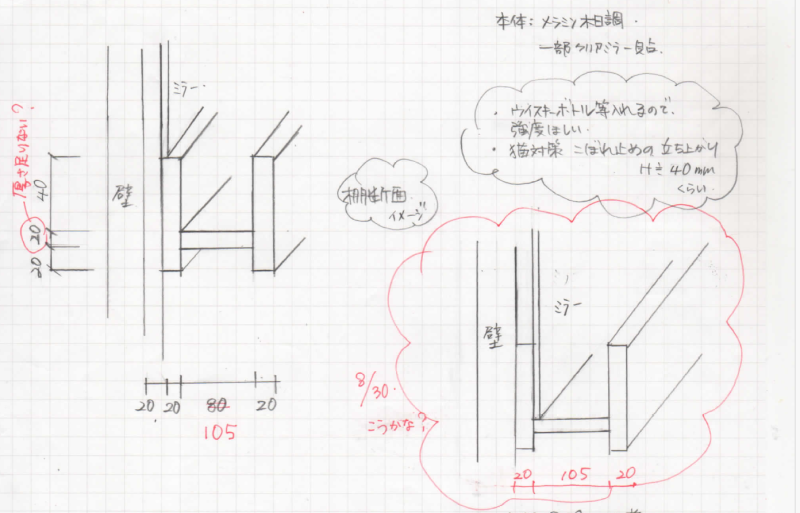 本体：メラミン木目調．
一部クリアミラー貼．
・ウイスキーボトル等入れるので、
強度ほしい．
・猫対策 こぼれ止めの立ち上がり
Hは40mm
くらい．
ミラー
厚さ足りない？
壁
40
20
20
棚断面
イメージ
20
20
80
20
105
8/30．
こうかな？
ミラー
壁
20
105
20